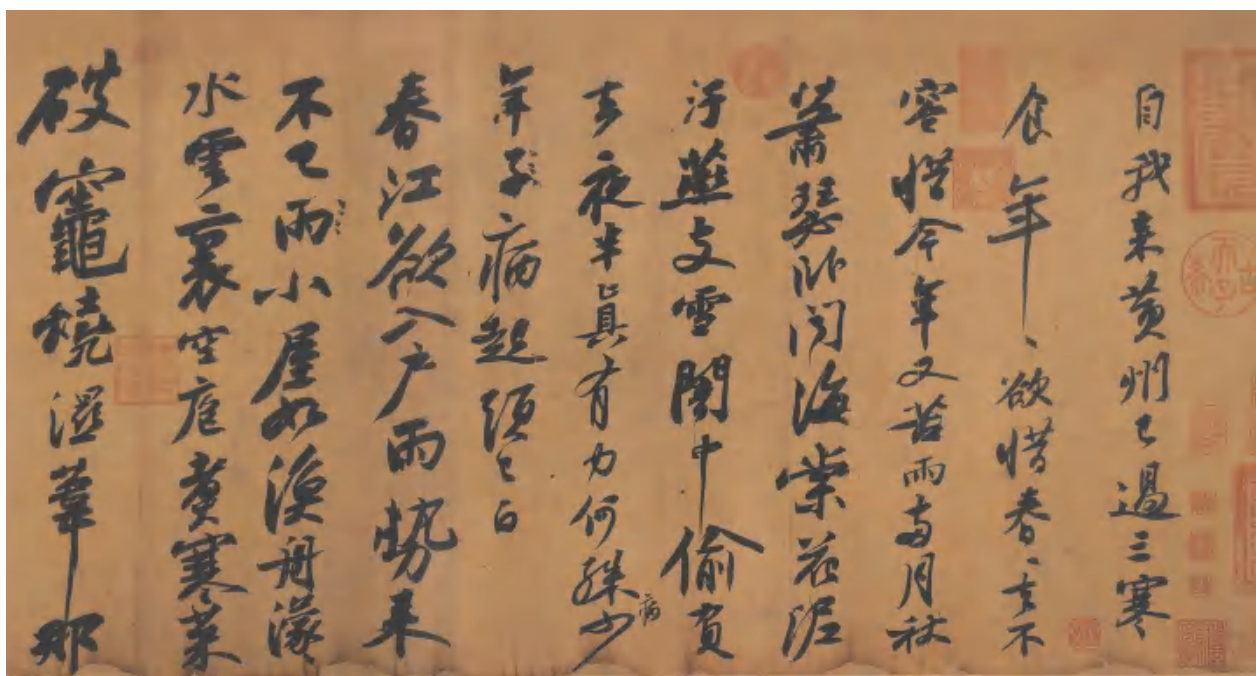 自我来黄州已過三寒
食年、欲惜春、去不
容惜今年又苦雨两月秋
蕭瑟卧聞海棠花泥
汙燕支雪闇中偷負
去夜半真有力何殊少
病
年子病起頭已白
春江欲入户雨勢来
不已雨小屋如漁舟濛
水雲裏空庖煮寒菜
破竈燒濕葦那